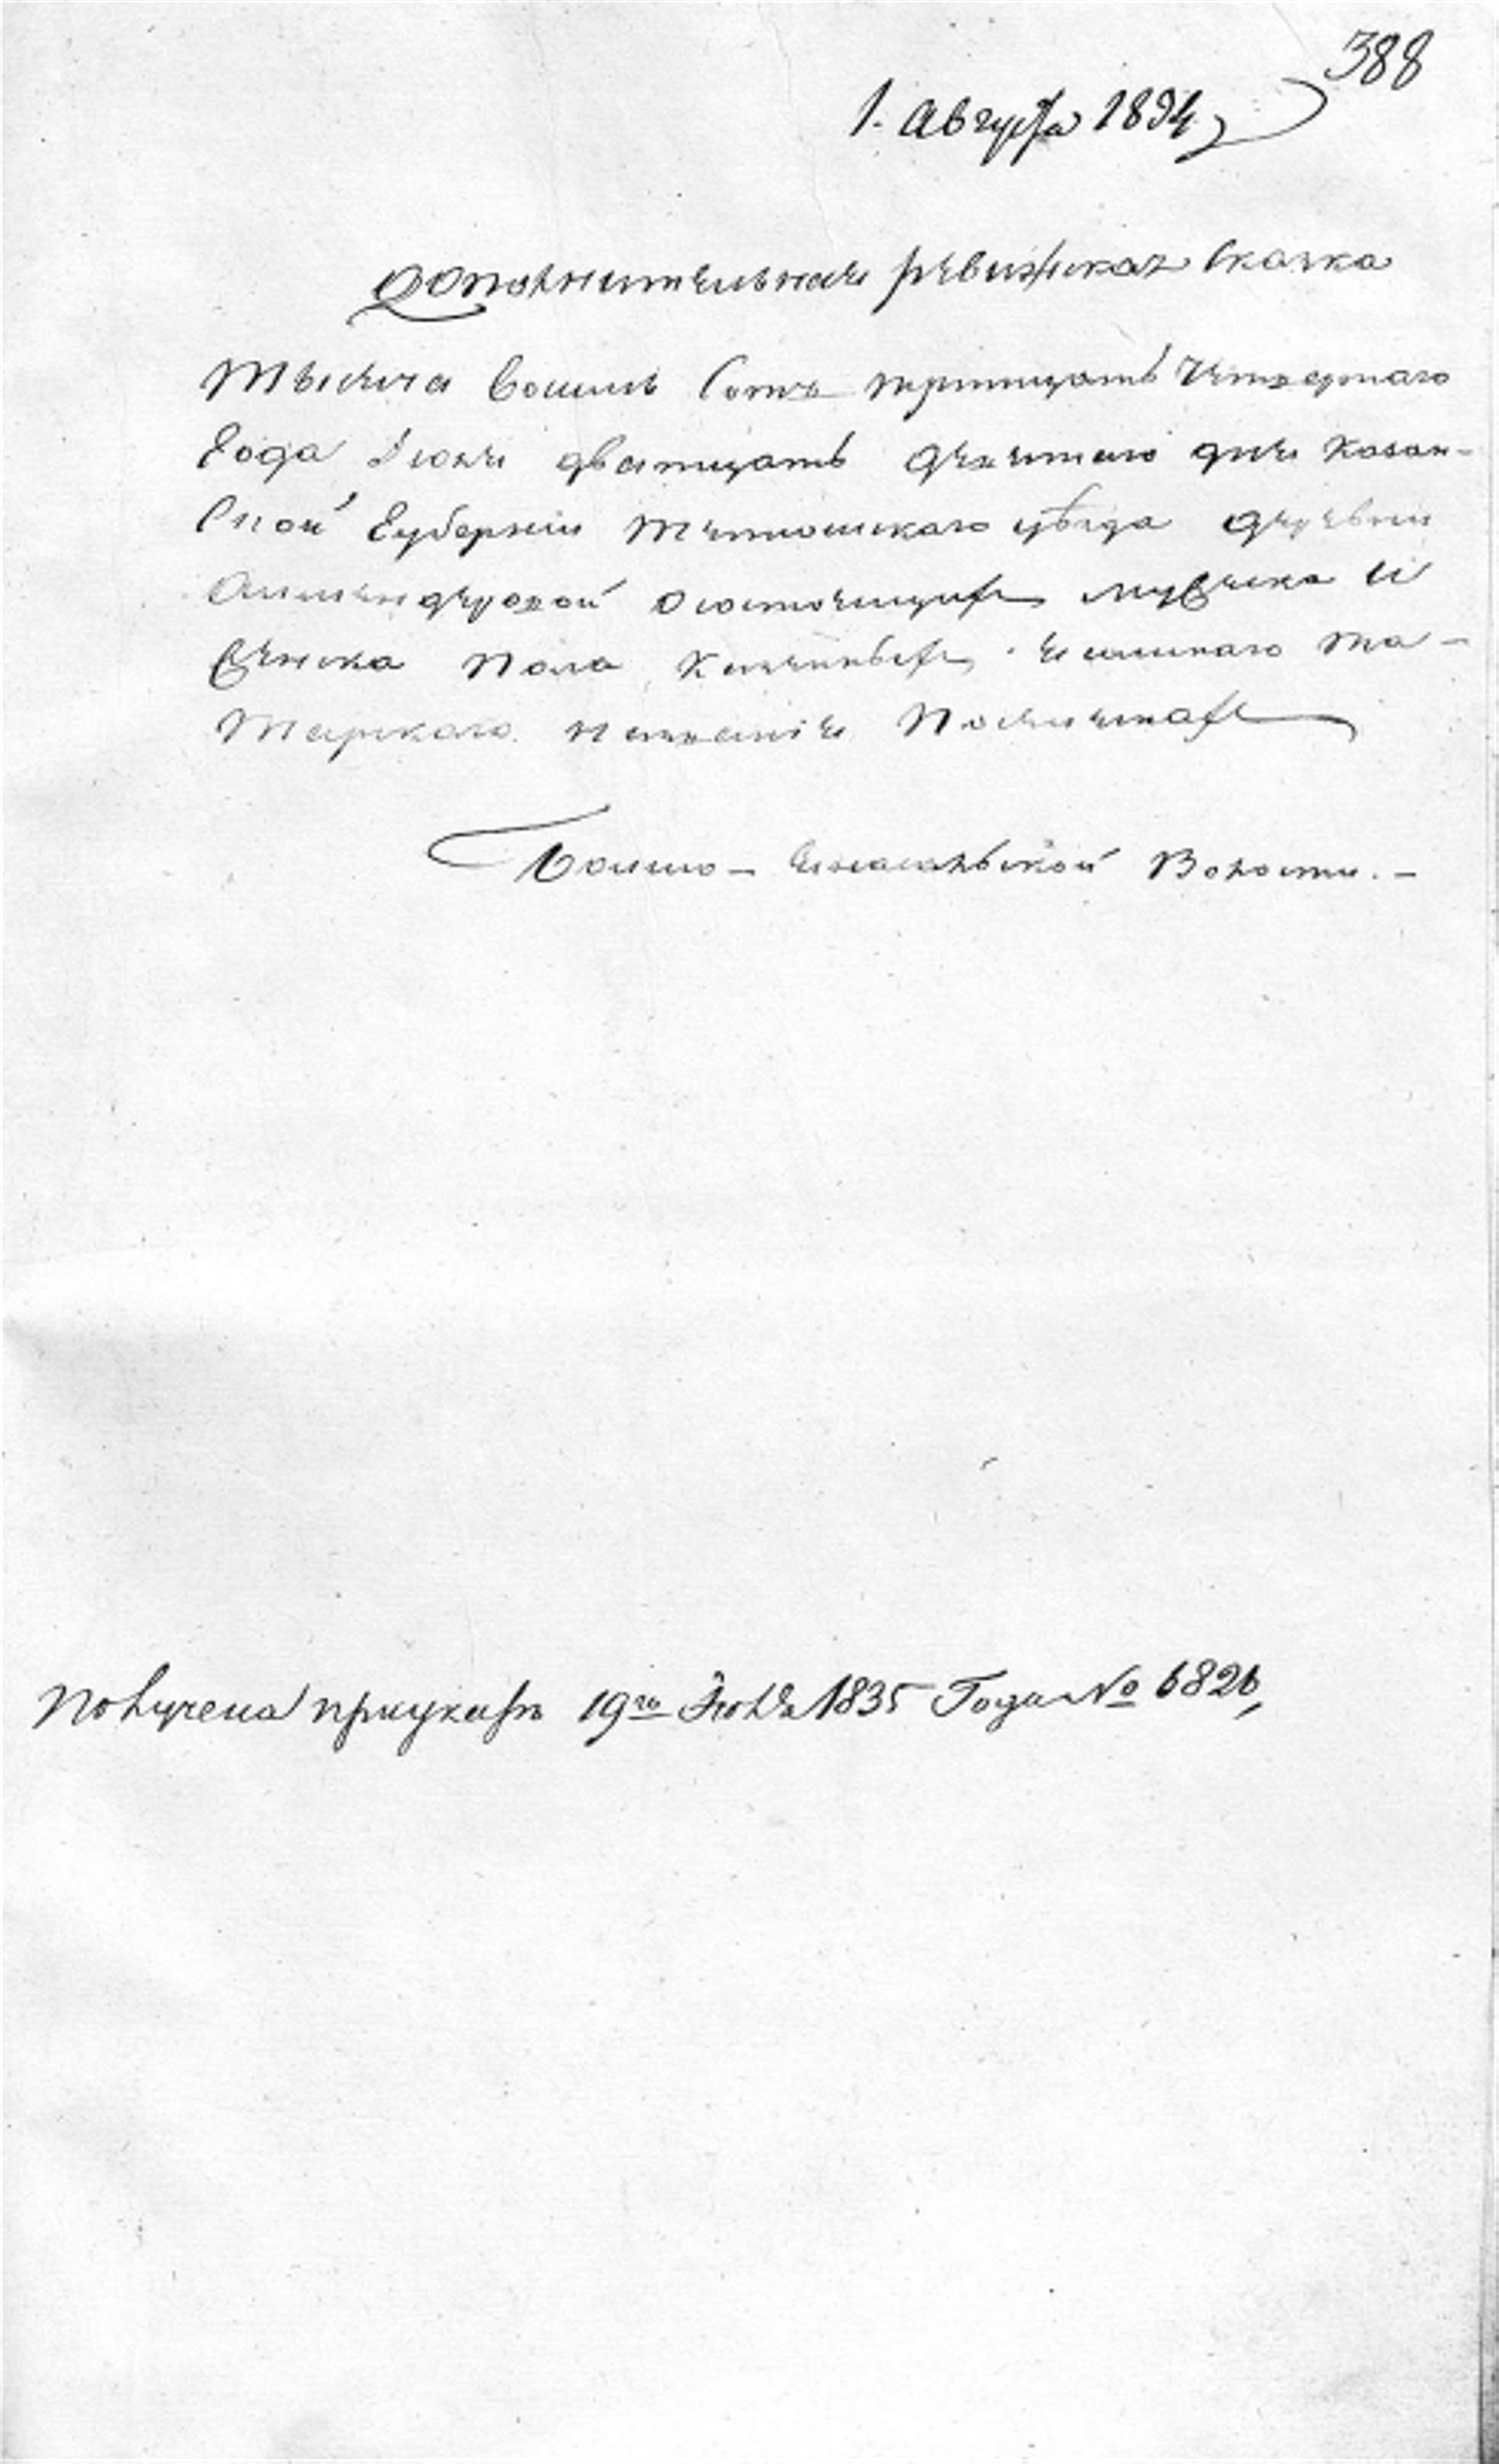 388
1. Августа 1834
Дополнительная ревизская скаска
тысяча восемь сотъ тритцать четвертаго
года Июля дватцать девятаго дня Казан-
ской губернiи Тетюшскаго уѣзда деревни
состоящихъ мужеска и
женска пола яшашнаго та-
тарскаго названiя
волости. -
Получена приуказѣ 19го Июля 1835 Года № 6826